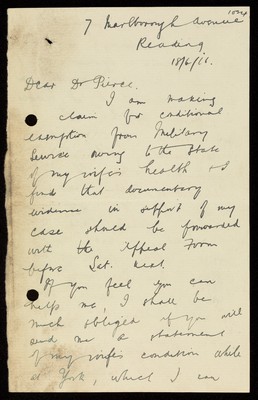 7 Marlborough Avenue
Reading
18/6/16.
Dear Dr Pierce.
I am making
claim for conditional
exemption from Military
Service owing to the state
of my wife's health & I
find that documentary
evidence in support of my
case should be forwarded
with the Appeal Form
before Sat. next.
If you feel you can
help me, I shall be
much obliged if you will
send me a statement
of my wife's condition while
at York, which I can